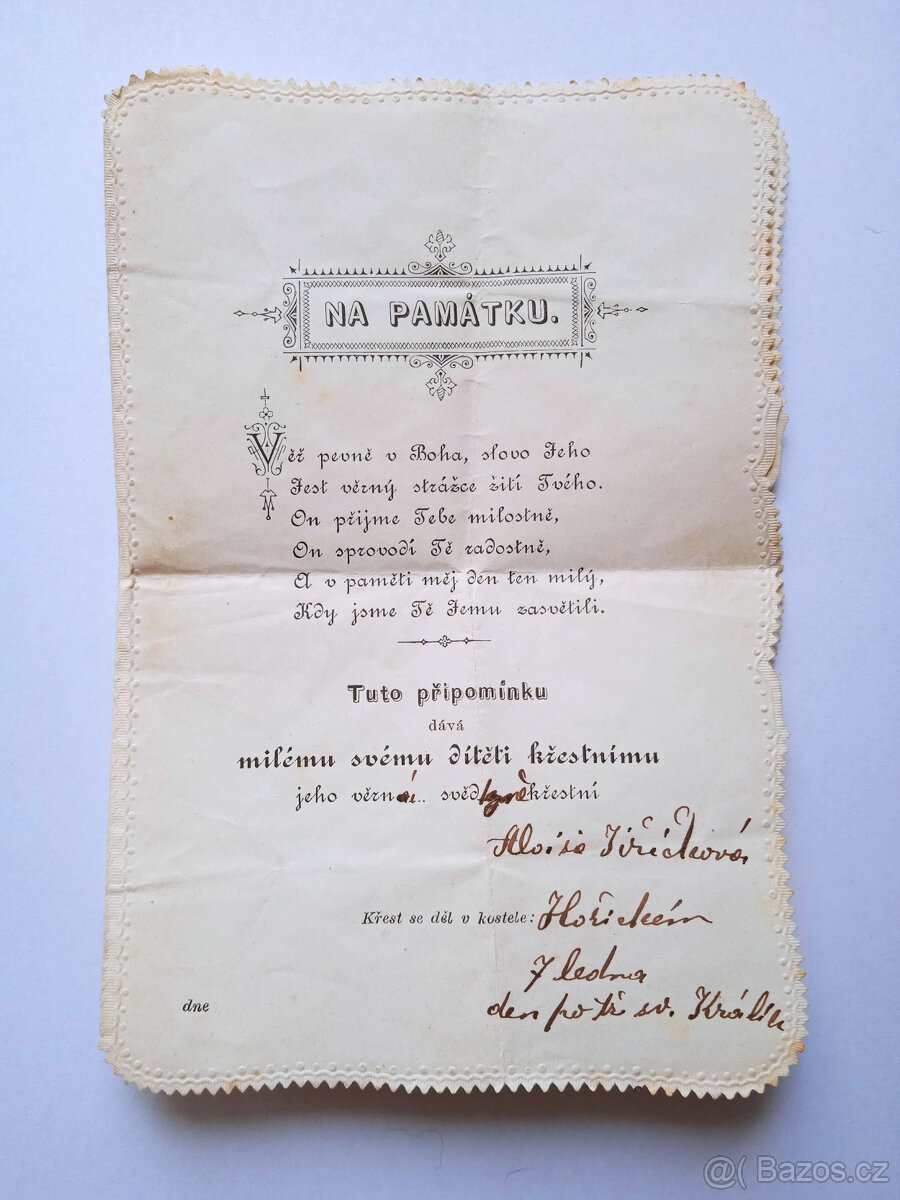 NA PAMÁTKU.
Věř pevně v Boha, slovo Jeho
Jest věrný strážce žití Tvého.
On přijme Tebe milostně,
On sprovodí Tě radostně,
A v paměti měj den ten milý,
Kdy jsme Tě Jemu zasvětili.
Tuto připomínku
dává
milému svému dítěti křestnímu
jeho věrná.. svědkyně křestní
Aloisie Jiřičková
Křest se děl v kostele: Hořickém
7 ledna
dne
den po tř sv. Králích
@ Bazos.cz